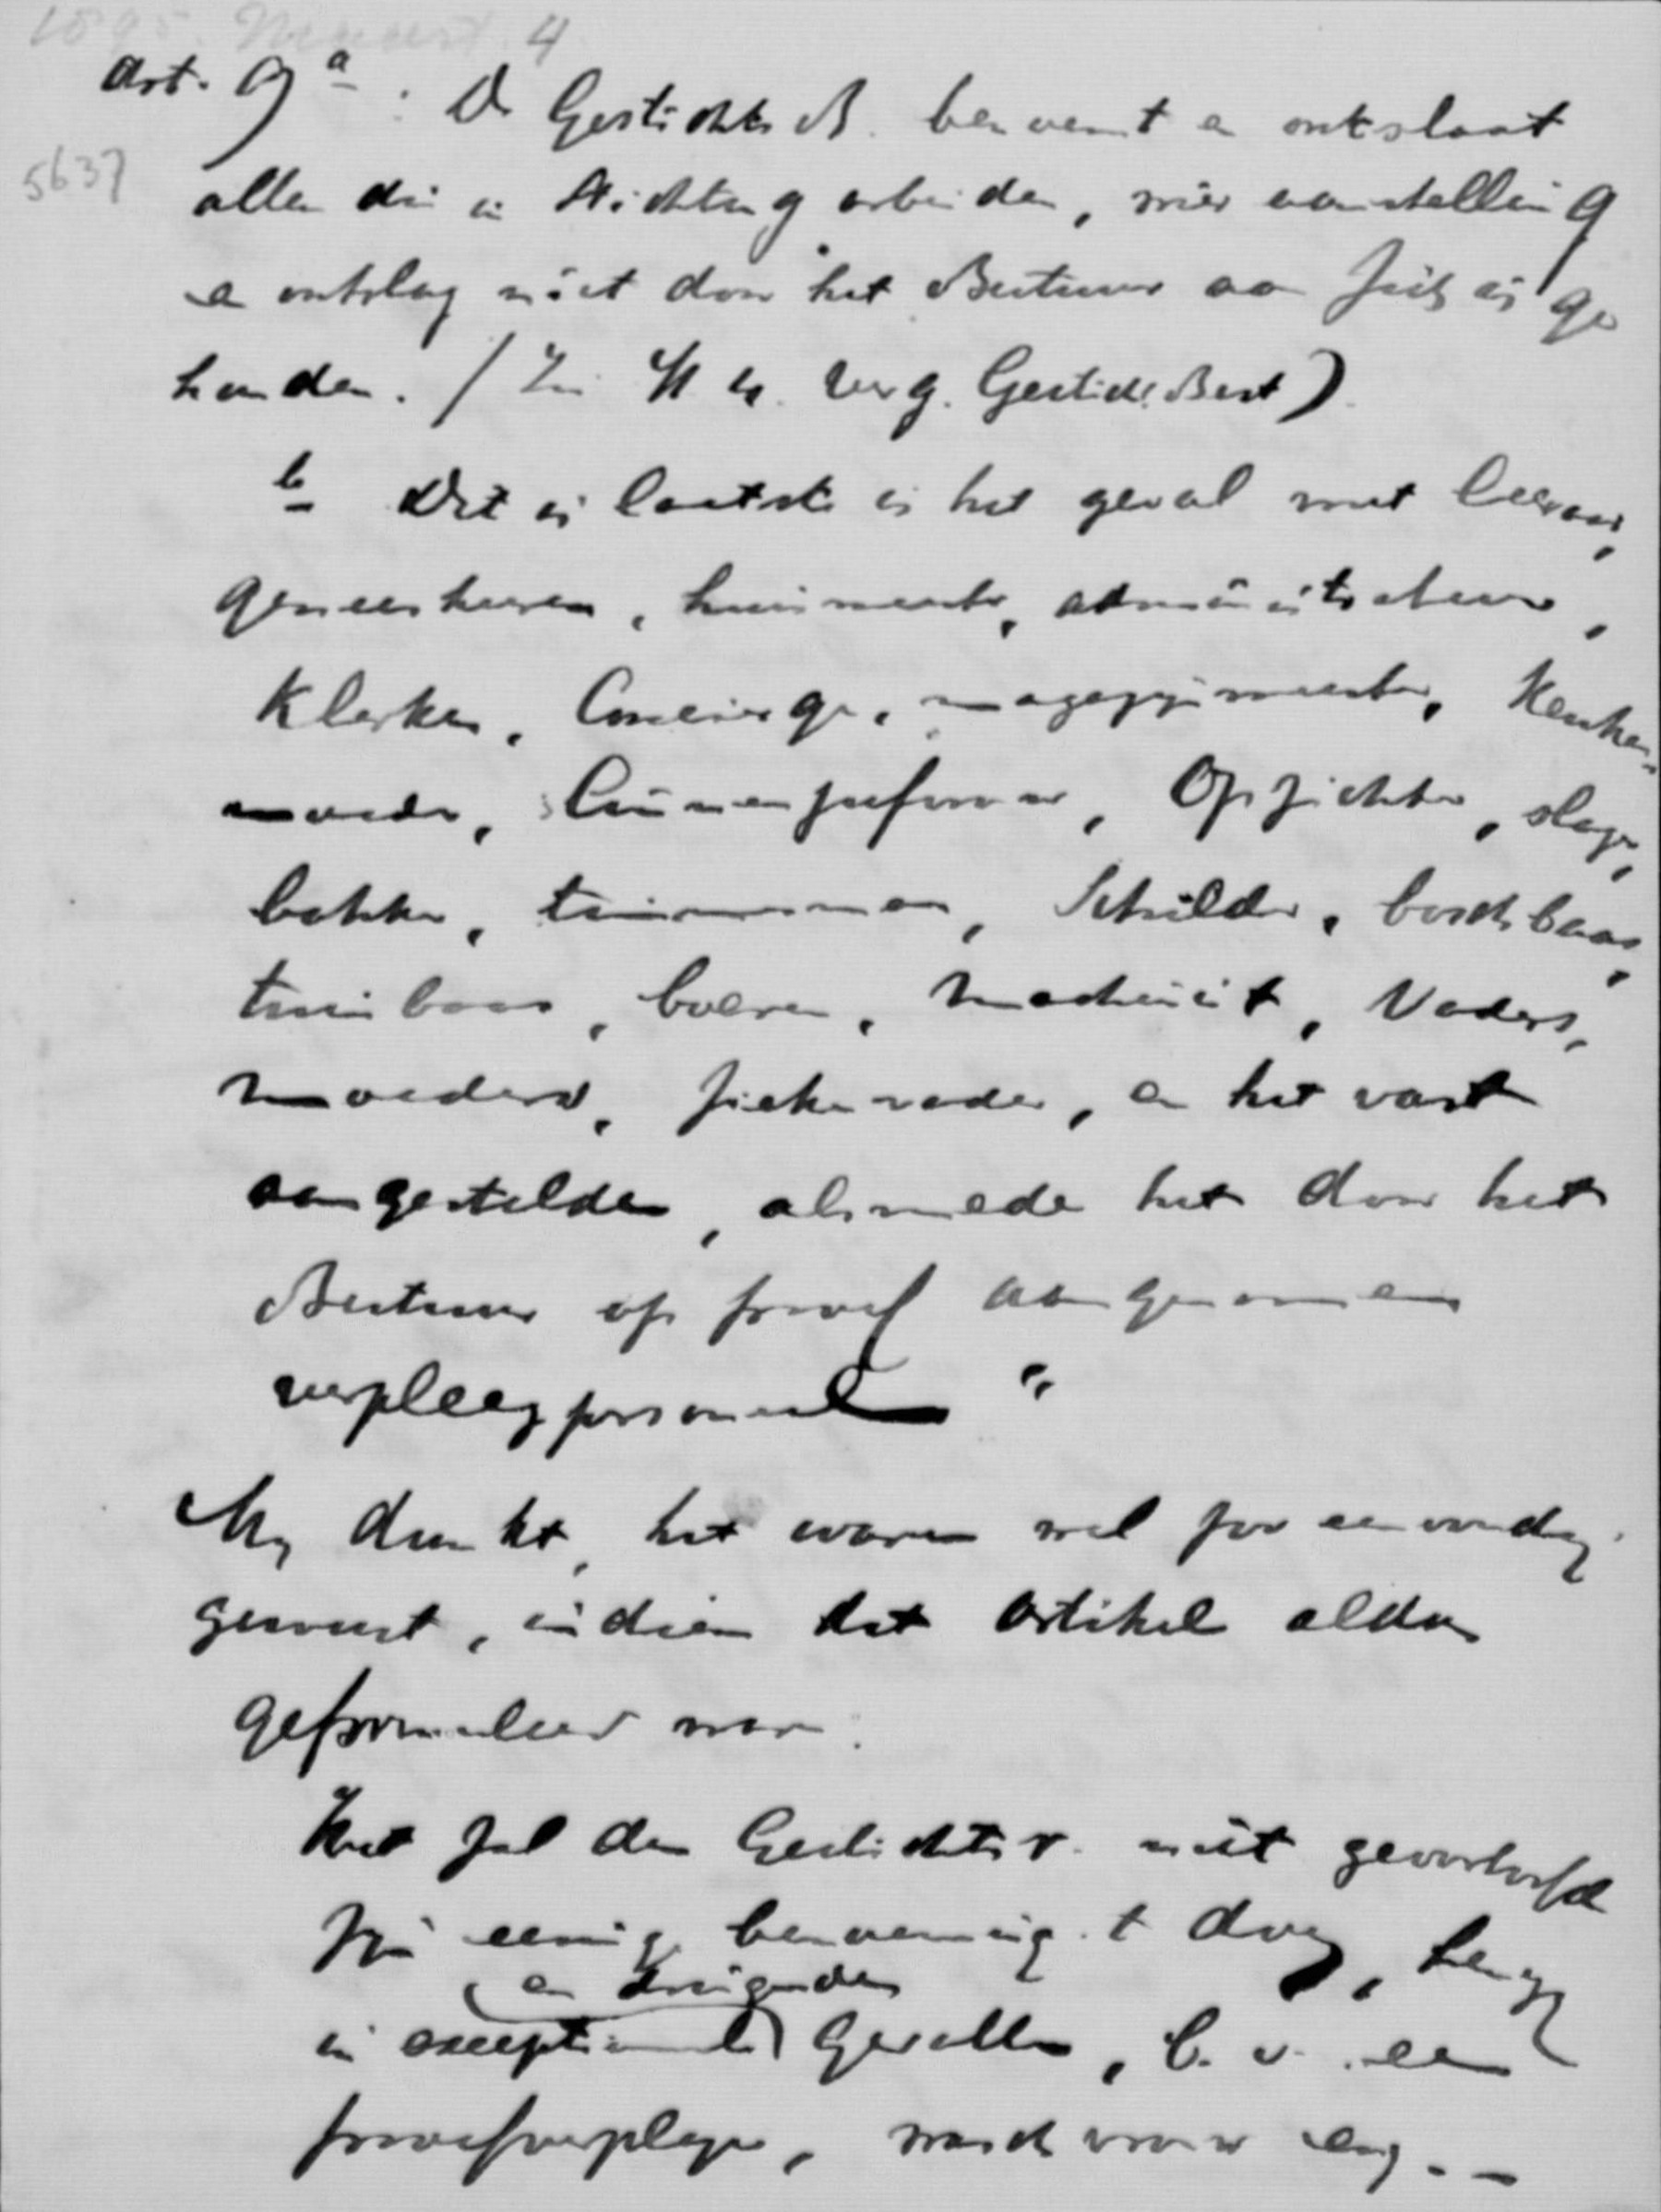 4
art. 9 a: De Gestichts B. benoemt en ontslaat
5637
allen die in Stichting arbeiden, wier aanstelling
en ontslag niet door het Bestuur aan zich is ge
houden. (Zie Verg. Gesticht. Best)
b Dit laatste is het geval met leeraar,
geneesheeren, huismeester, administrateur,
Klerken, Concierge, magazijnmeester, Keuken-
moeder, linnenjufvrouw, Opzichter, slager,
bakker, timmerman, Schilder, boschbaas,
tuinbaas, boeren, Machinist, Vaders,
Moeders, ziekenvader, en het vast
aangestelden, alsmede het door het
Bestuur op proef aangenomen
verpleegpersoneel "
Mij dunkt, het ware wel zoo eenvoudig
geweest, indien dat artikel aldus
geformuleerd was:
Het zal den Gestichts v. niet geoorloofd
zijn eenige benoeming t doen, tenzij
en dringende
in exceptioneele gevallen, b. v. een
proefverpleger, waschvrouw enz. -